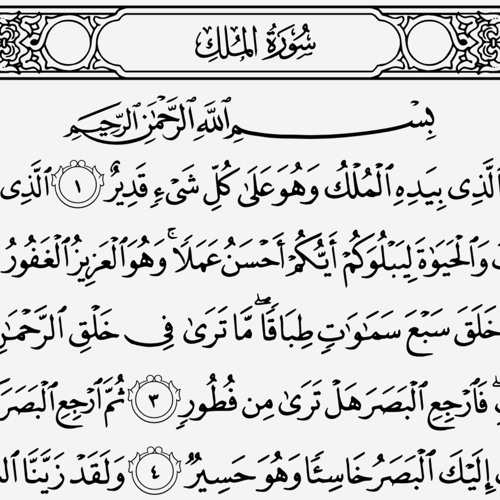 سُورَةُ الْمُلْكِ
بِسْمِ اللَّهِ الرَّحْمَٰنِ الرَّحِيمِ
الَّذِى بِيَدِهِ الْمُلْكُ وَهُوَ عَلَىٰ كُلِّ شَىْءٍ قَدِيرٌ ١ الَّذِى
وَالْحَيَوٰةَ لِيَبْلُوَكُمْ أَيُّكُمْ أَحْسَنُ عَمَلًا ۚ وَهُوَ الْعَزِيزُ الْغَفُورُ
خَلَقَ سَبْعَ سَمَـٰوَٰتٍ طِبَاقًا ۖ مَّا تَرَىٰ فِى خَلْقِ الرَّحْمَـٰنِ
فَارْجِعِ الْبَصَرَ هَلْ تَرَىٰ مِن فُطُورٍ ٣ ثُمَّ ارْجِعِ الْبَصَرَ
إِلَيْكَ الْبَصَرُ خَاسِئًا وَهُوَ حَسِيرٌ ٤ وَلَقَدْ زَيَّنَّا